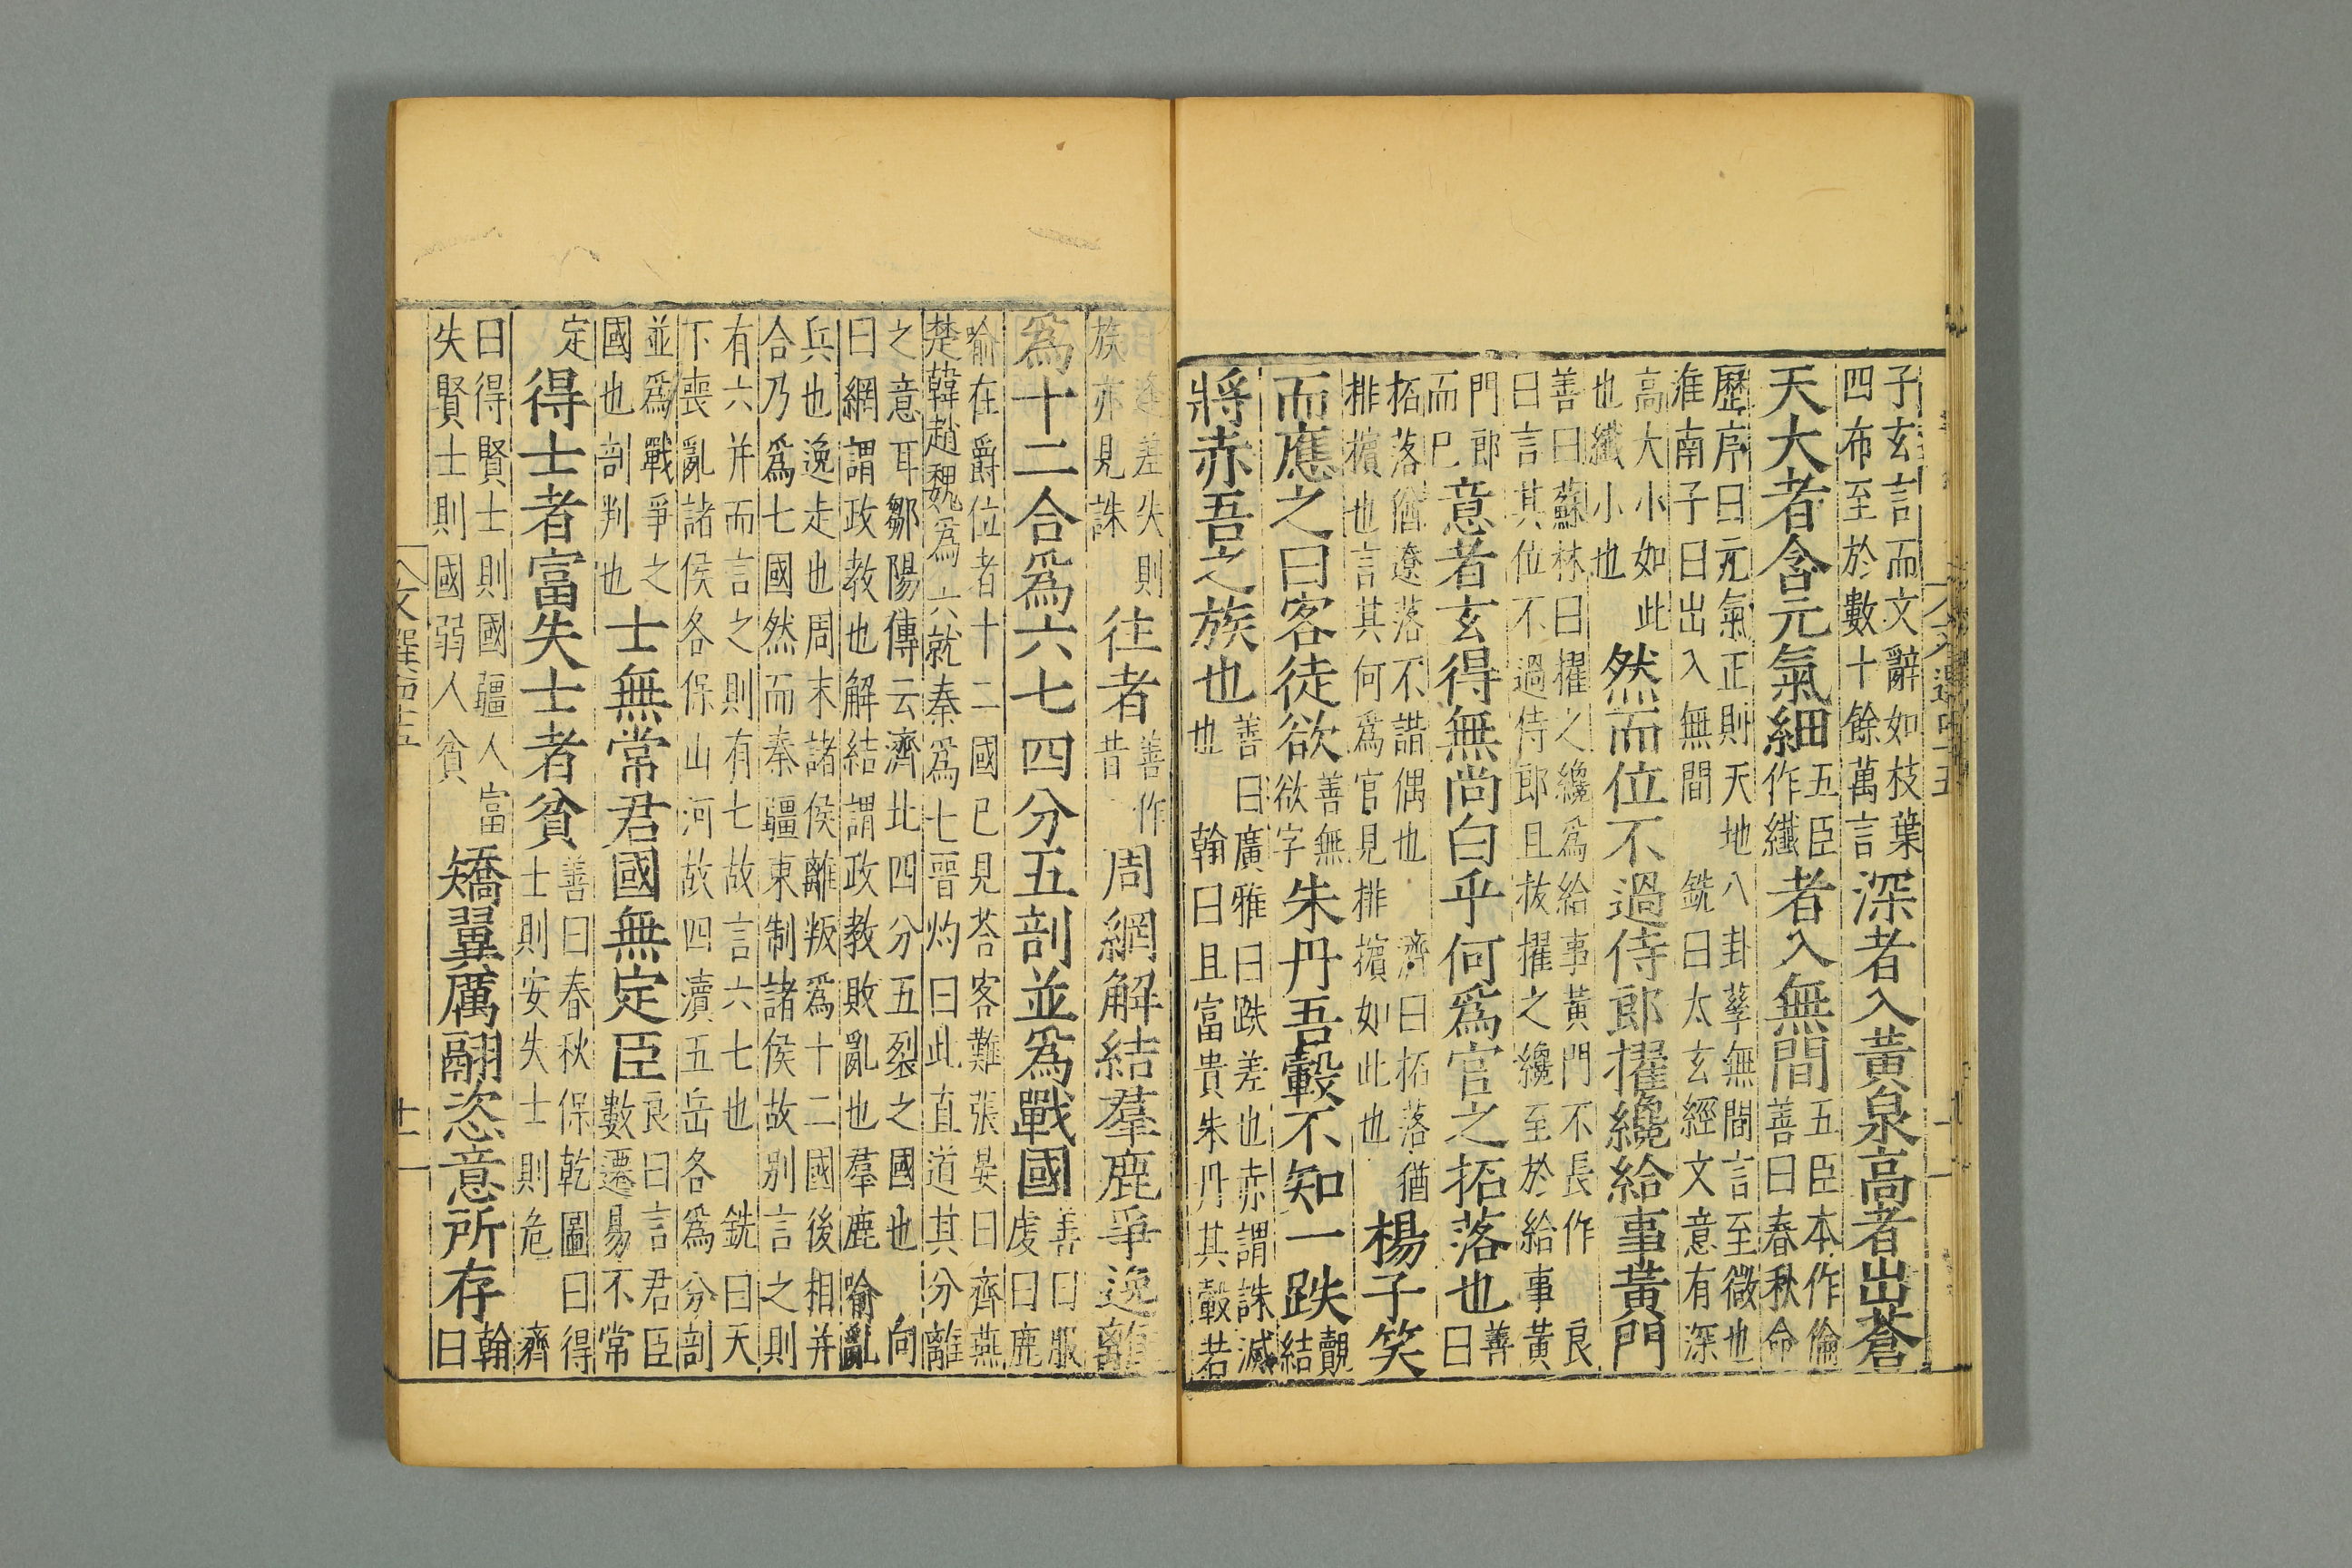 子玄言而文辭如枝葉
四布至於數十餘萬言
深者入黃泉高者出蒼
天大者含元氣細
五臣
作纖
者入無間
五臣本作倫
善曰春秋命
歷序曰元氣正則天地八卦孳無間言至微也
淮南子曰出入無間 銑曰太玄經文意有深
高大小如此
也纖小也
然而位不過侍郎擢纔給事黃門
善曰蘇林曰擢之纔爲給事黃門不長作 良
曰言其位不過侍郎且拔擢之纔至於給事黃
門郎
而已
意者玄得無尚白乎何爲官之拓落也
善
曰
拓落猶遼落不諧偶也 濟曰拓落猶
排擯也言其何爲官見排擯如此也
楊子笑
而應之曰客徒欲
善無
欲字
朱丹吾轂不知一跌
覿
結
將赤吾之族也
善曰廣雅曰跌差也赤謂誅滅
也 翰曰且富貴朱丹其轂若
差失則
族亦見誅
往者
善作
昔
周網解結羣鹿爭逸離
爲十二合爲六七四分五剖並爲戰國
善曰服
虔曰鹿
喻在爵位者十二國已見荅客難張晏曰齊燕
楚韓趙魏爲六就秦爲七晉灼曰此直道其分離
之意耳鄒陽傳云濟北四分五裂之國也 向
曰網謂政教也解結謂政教敗亂也羣鹿喻亂
兵也逸走也周末諸侯離叛爲十二國後相并
合乃爲七國然而秦疆東制諸侯故别言之則
有六并而言之則有七故言六七也 銑曰天
下喪亂諸侯各保山河故四瀆五岳各爲分剖
並爲戰爭之
國也剖判也
士無常君國無定臣
良曰言君臣
數遷易不常
定
得士者富失士者貧
善曰春秋保乾圖曰得
士則安失士則危 濟
曰得賢士則國疆人富
失賢士則國弱人貧
矯翼厲翮恣意所存
翰
曰
文選四十五
十一